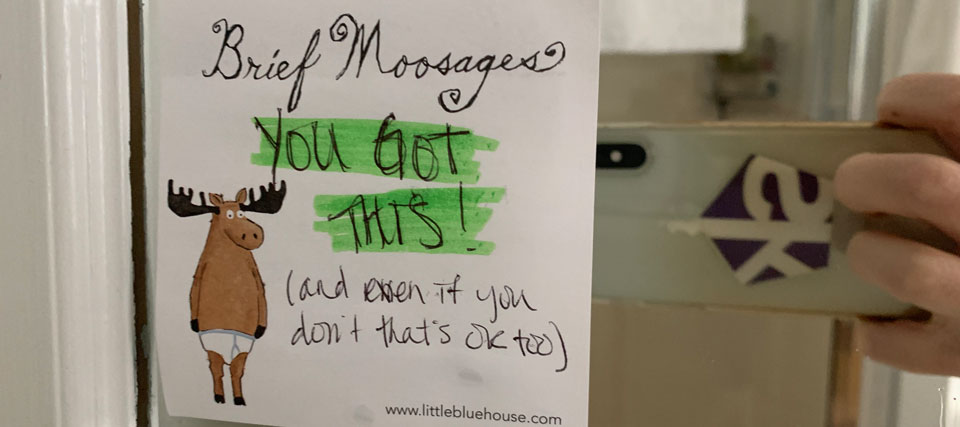 Brief Moosages
YOU GOT
THIS!
(and even if you
don't that's ok too)
www.littlebluehouse.com